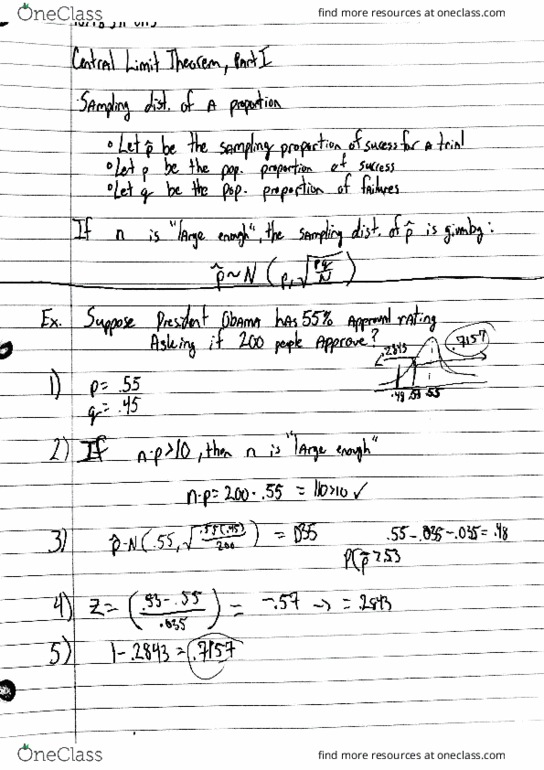 OneClass
find more resources at oneclass.com
Central Limit Theorem, Part I
Sampling dist. of A proportion
° Let p̂ be the sampling proportion of sucess for a trial
° Let p be the pop. proportion of success
° Let q be the pop. proportion of failures
If n is "large enough", the sampling dist. of p̂ is given by:
p̂ ~ N (p, √pq/N)
Ex. Suppose President Obama has 55% Approval rating
Asking if 200 people Approve?
.2843 .7157
.48 .53 .55
1) p = .55
q = .45
2) If n·p>10, then n is "large enough"
n·p = 200 · .55 = 110>10 ✓
3) p̂~N(.55, √.55(.45)/200) = .035 .55 - .035 - .035 = .48
P(p̂ ≥ .53
4) Z = (.53 - .55/.035) = -.57 → = .2843
5) 1 - .2843 = .7157
OneClass
find more resources at oneclass.com